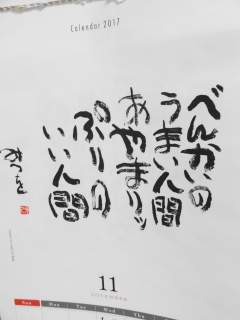 Calendar 2017
べんかいの
うまい人間
あやまりッ
ぷりの
いい人間
みつを
11
NOVEMBER
Sun Mon Tue Wed Thu
1